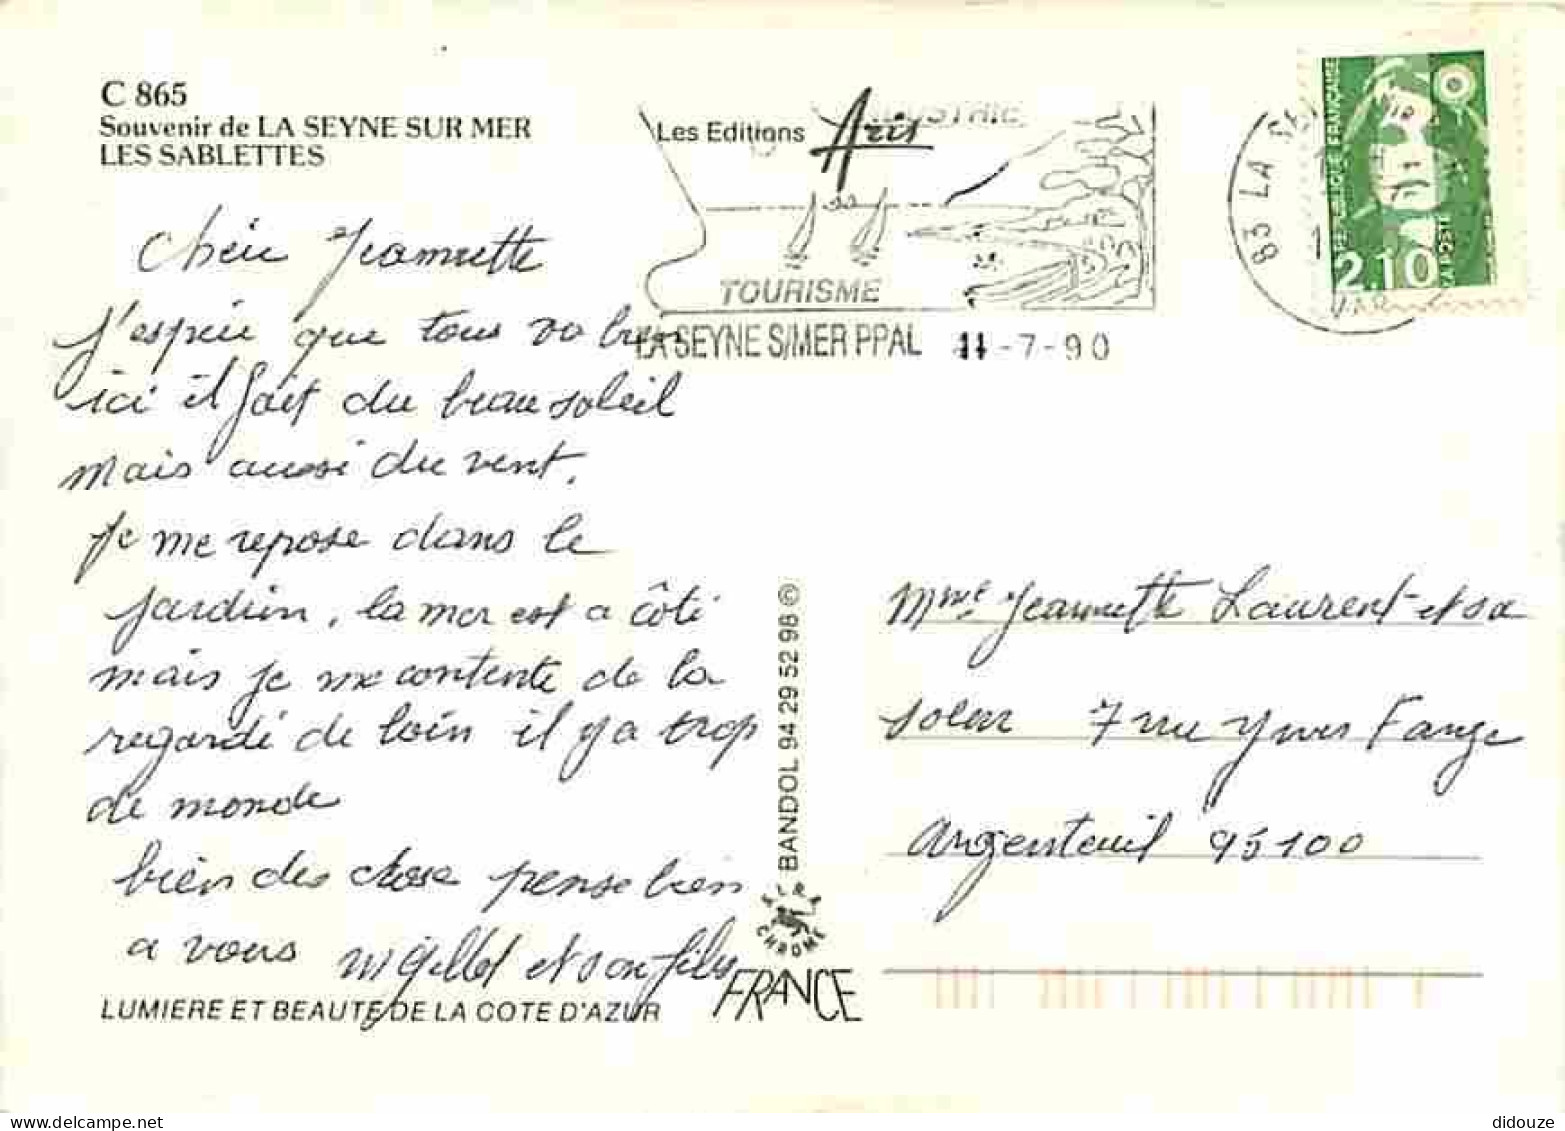 C 865
Souvenir de LA SEYNE SUR MER
LES SABLETTES
Les Editions Aris
INDUSTRIE
TOURISME
LA SEYNE S/MER PPAL 11-7-90
83 LA SE
VAR
REPUBLIQUE FRANCAISE
LA POSTE
2,10
Chéie Jeannette
J'espéie que tous va bien
ici il fait du beau soleil
mais aussi du vent.
Je me repose dans le
jardin, la mer est a côté
mais je me contente de la
regardé de loin il y a trop
de monde
bien des chose pense bien
a vous m Gillot et son fils
LUMIERE ET BEAUTE DE LA COTE D'AZUR
BANDOL 94 29 52 98 ©
CHROME
FRANCE
Mme Jeannette Laurent et sa
soeur 7 rue Yves Farge
Argenteuil 95100
didouze